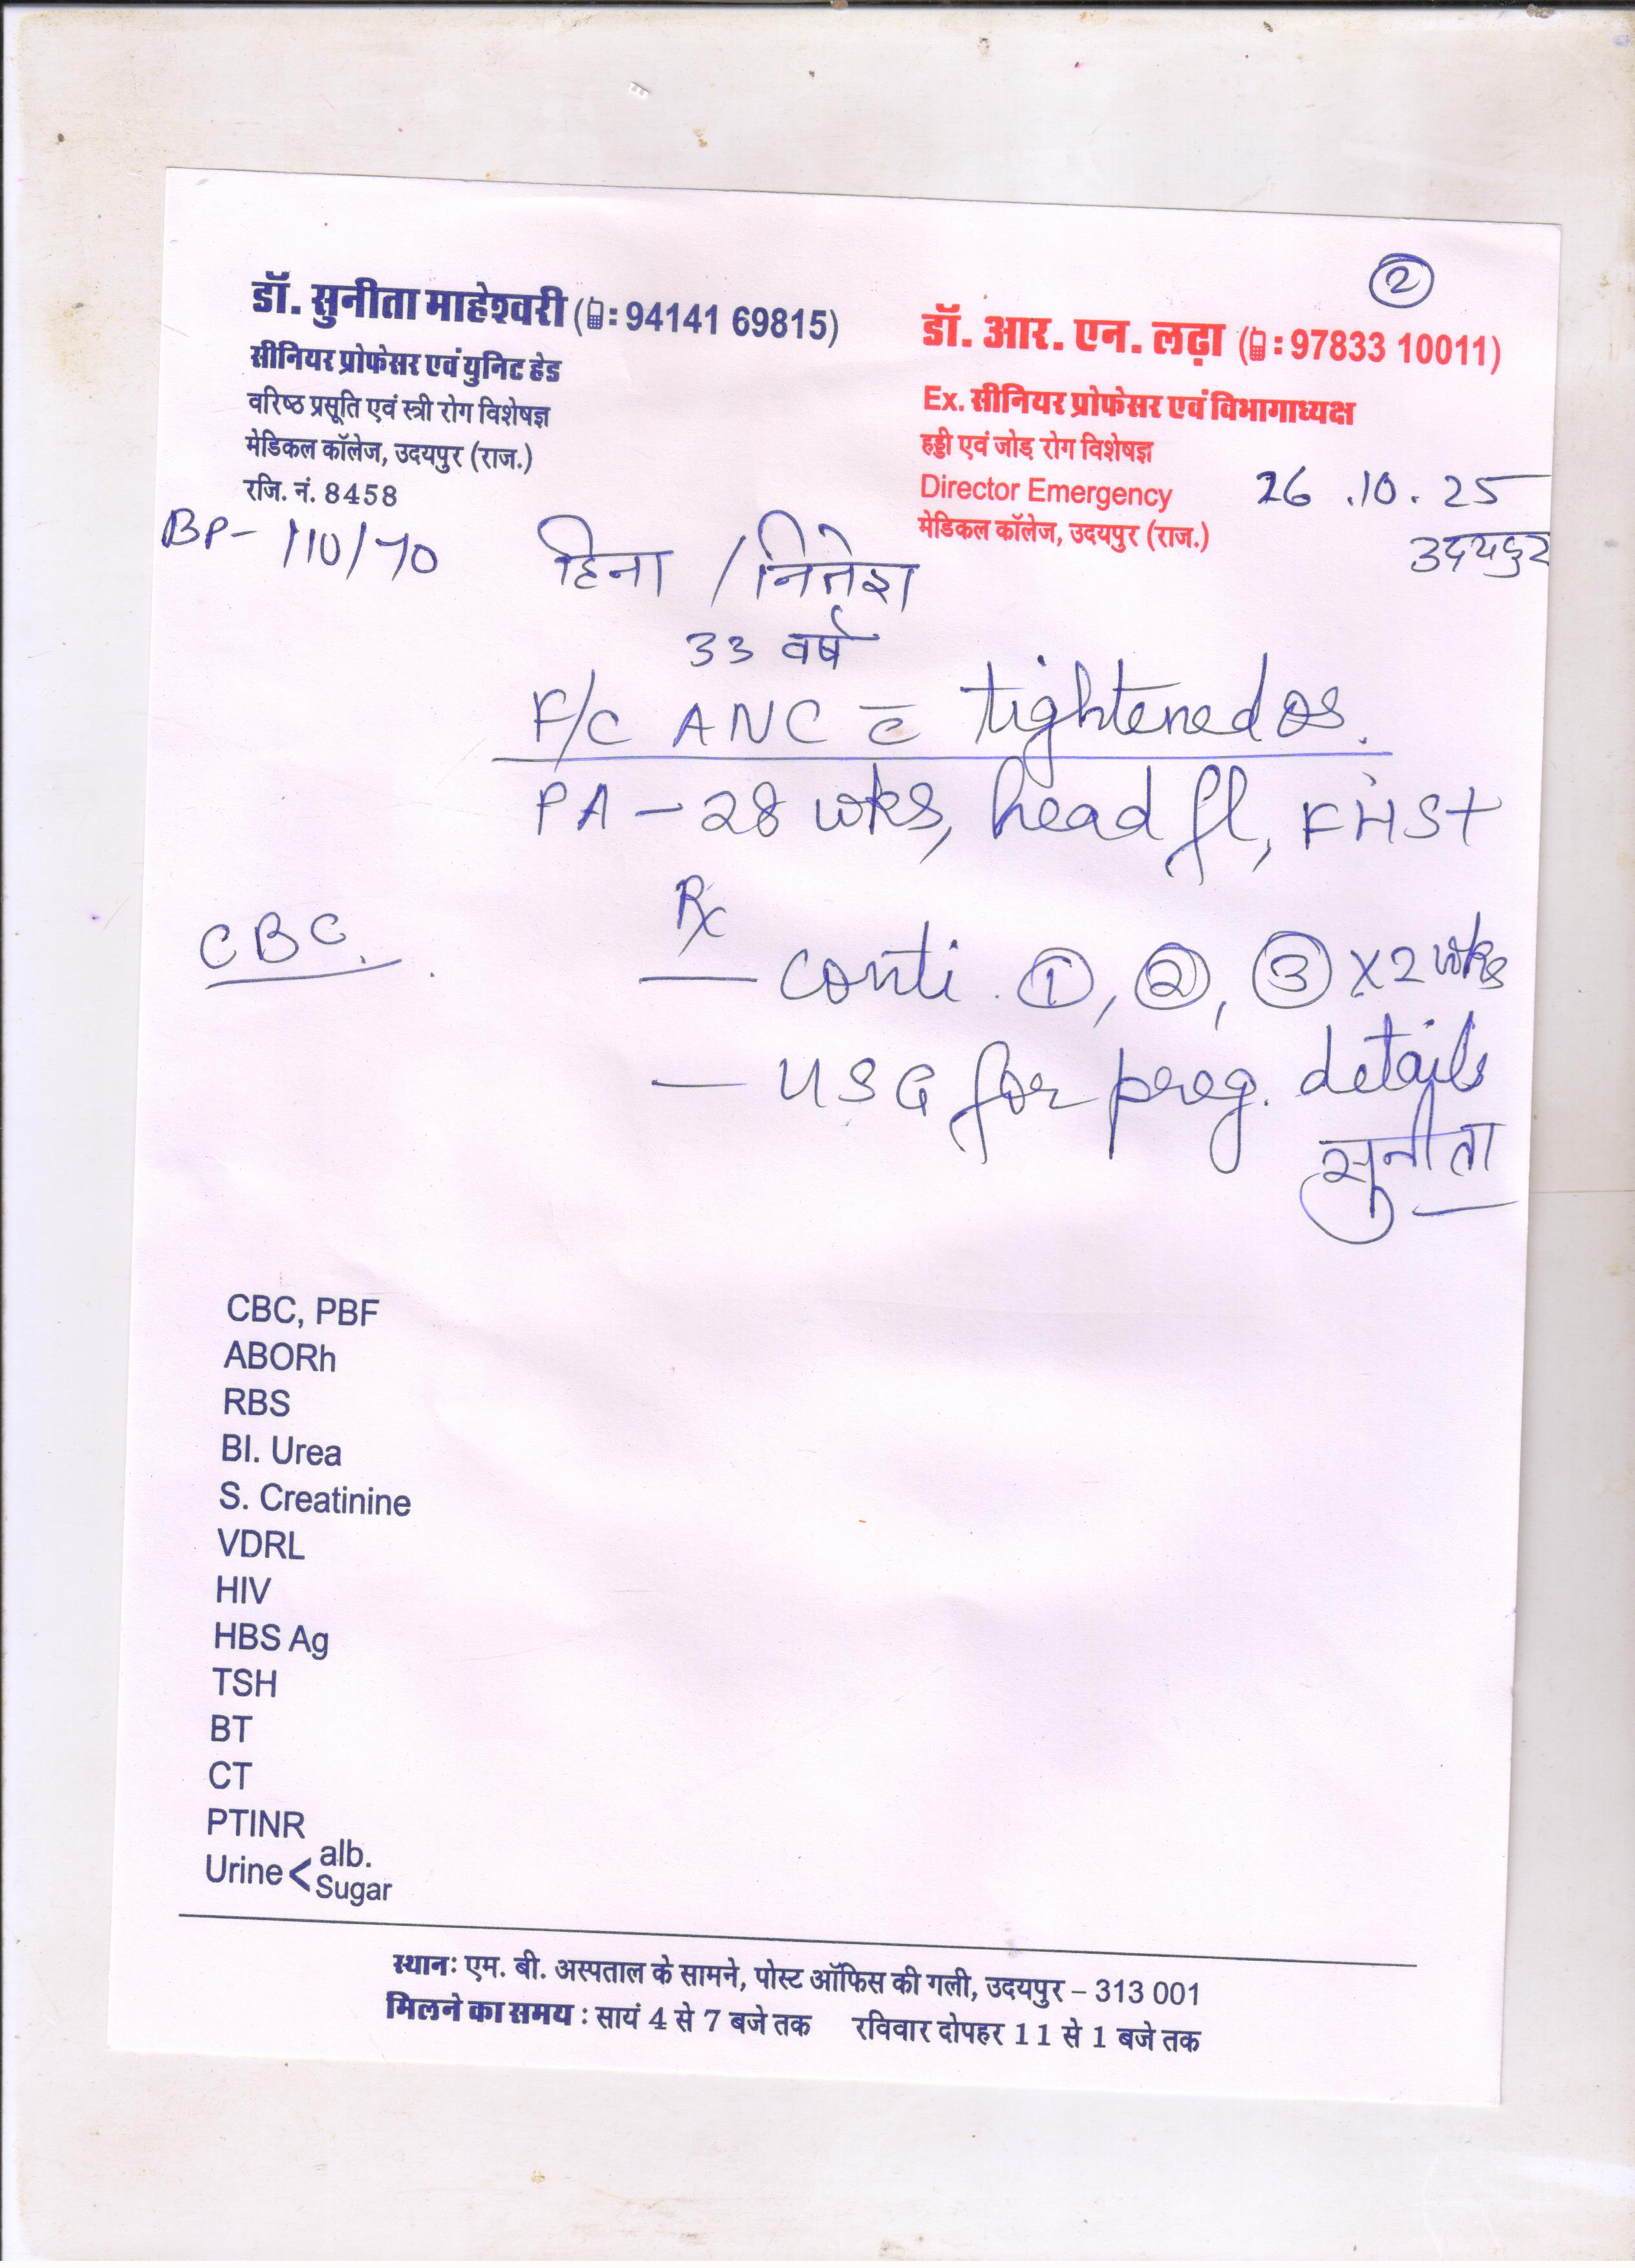 ②
डॉ. सुनीता माहेश्वरी (📱: 94141 69815)
सीनियर प्रोफेसर एवं युनिट हेड
वरिष्ठ प्रसूति एवं स्त्री रोग विशेषज्ञ
मेडिकल कॉलेज, उदयपुर (राज.)
रजि. नं. 8458
डॉ. आर. एन. लढ़ा (📱: 97833 10011)
Ex. सीनियर प्रोफेसर एवं विभागाध्यक्ष
हड्डी एवं जोड़ रोग विशेषज्ञ
Director Emergency
मेडिकल कॉलेज, उदयपुर (राज.)
26.10.25
उदयपुर
BP- 110/70
हिना / नितेश
33 वर्ष
F/C ANC c̄ tightened os.
PA - 28 wks, head fl, FHS+
CBC.
Rx
- conti. ①, ②, ③ x 2 wks
- USG for preg. details
सुनीता
CBC, PBF
ABORh
RBS
Bl. Urea
S. Creatinine
VDRL
HIV
HBS Ag
TSH
BT
CT
PTINR
Urine < alb.
Sugar
स्थान: एम. बी. अस्पताल के सामने, पोस्ट ऑफिस की गली, उदयपुर – 313 001
मिलने का समय : सायं 4 से 7 बजे तक रविवार दोपहर 11 से 1 बजे तक